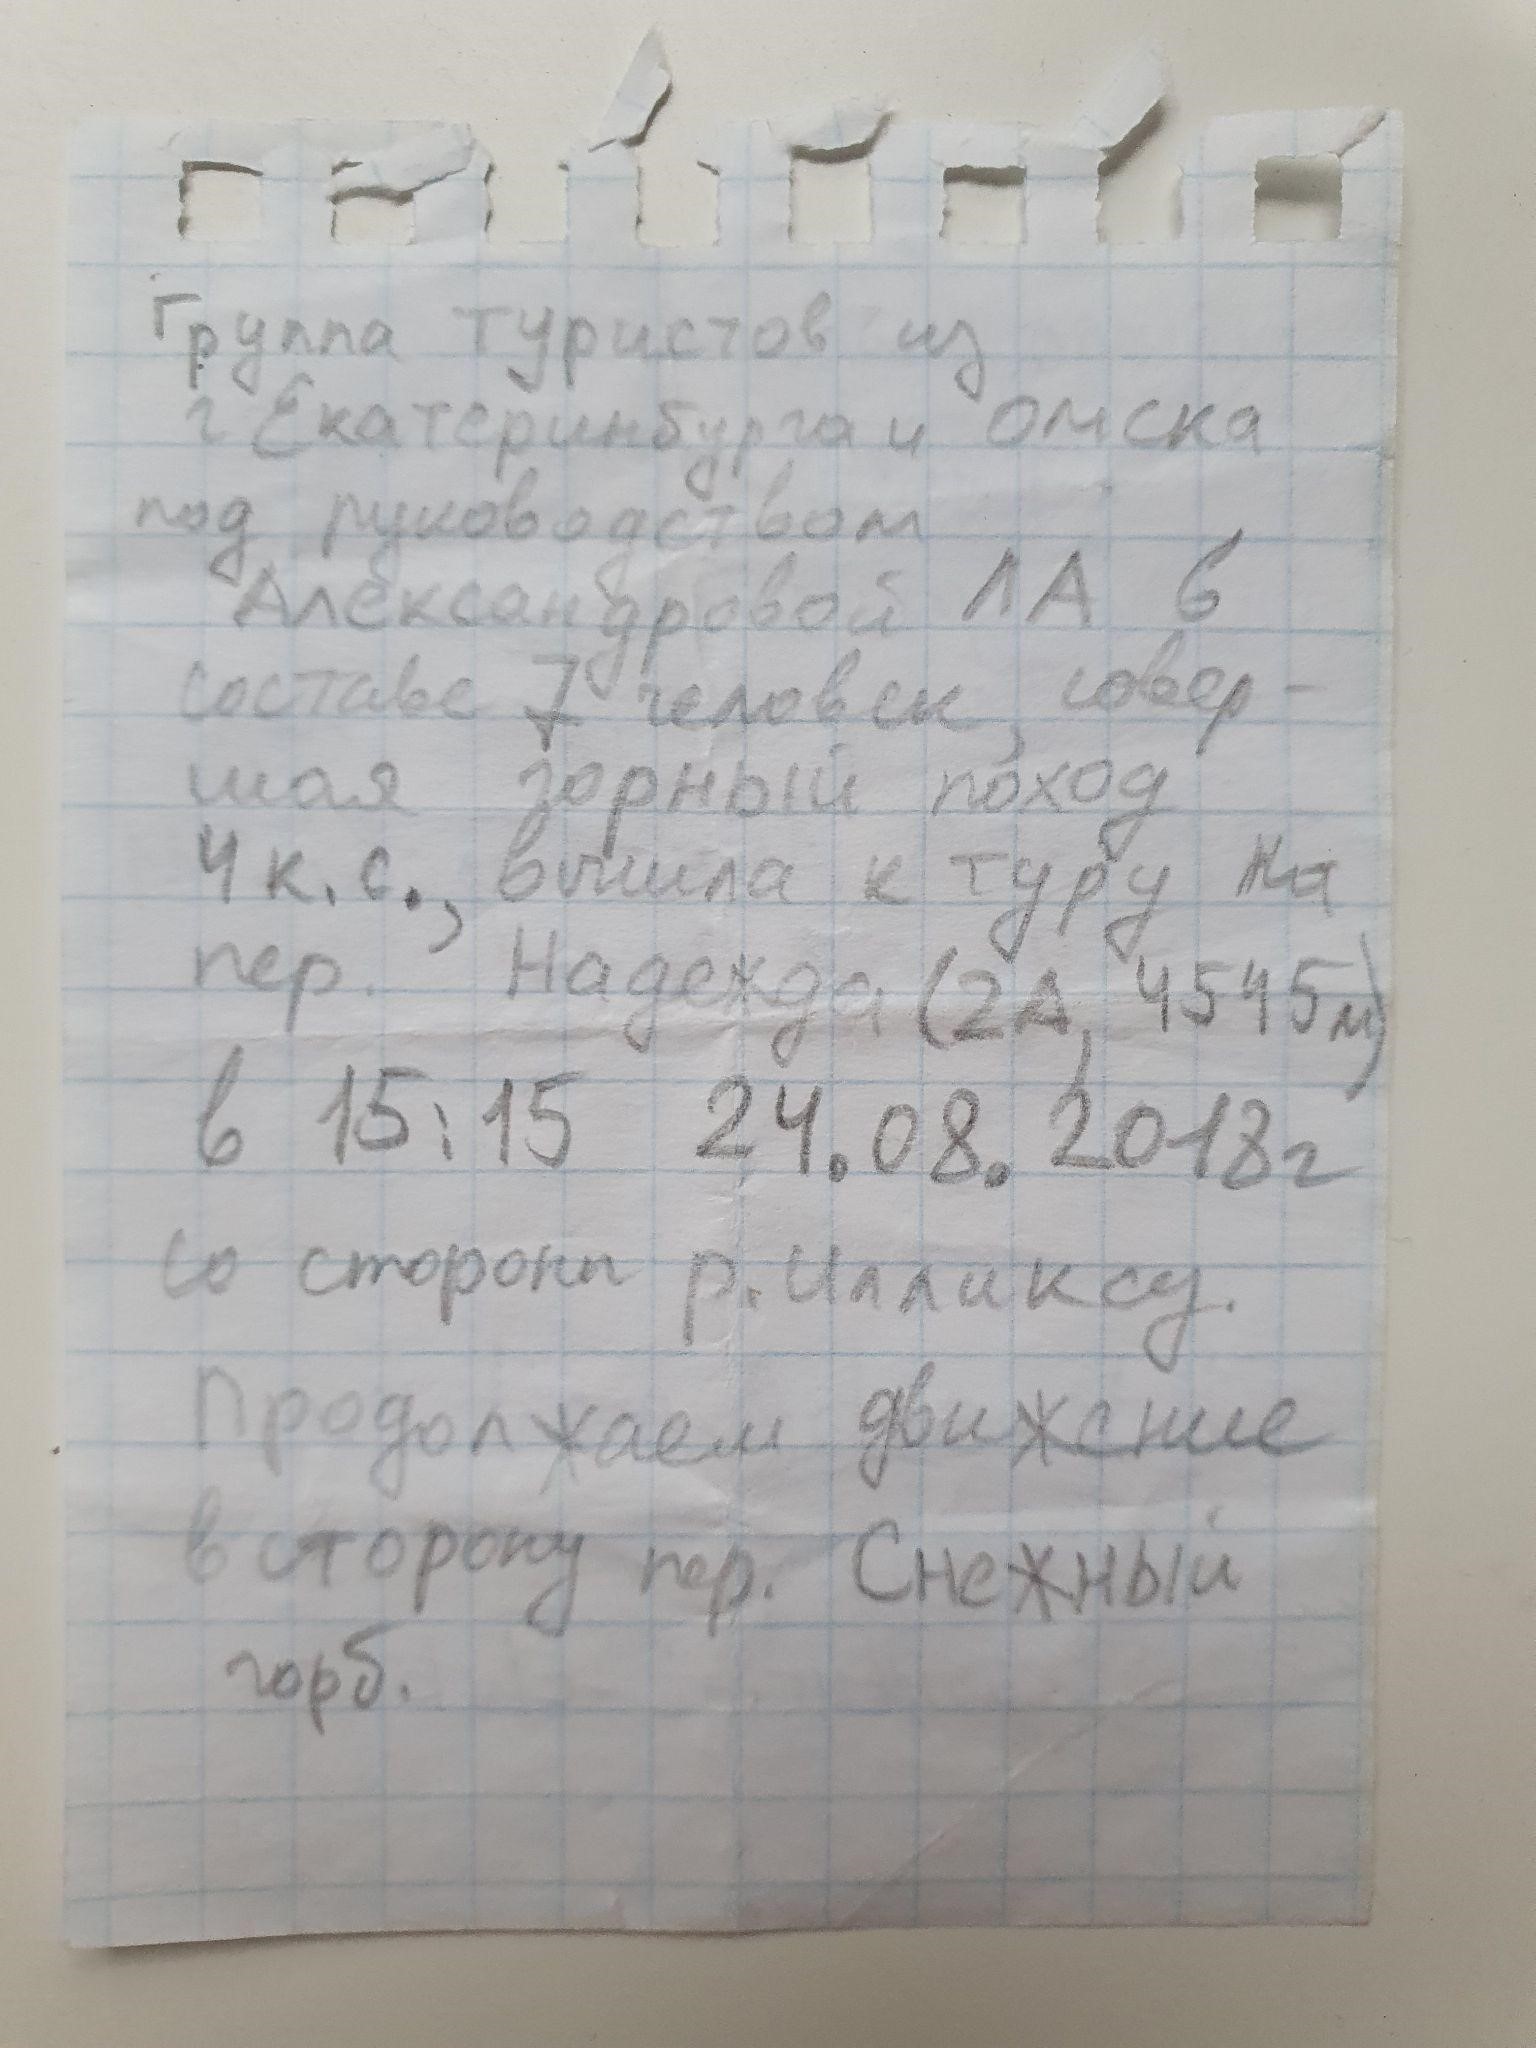 Группа туристов из
г Екатеринбурга и Омска
под руководством
Александровой ЛА в
составе 7 человек, совер-
шая горный поход
4 к.с., вышла к туру на
пер. Надежда (2А, 4545м)
в 15:15 24.08.2018г
со стороны р. Илликсу.
Продолжаем движение
в сторону пер. Снежный
горб.